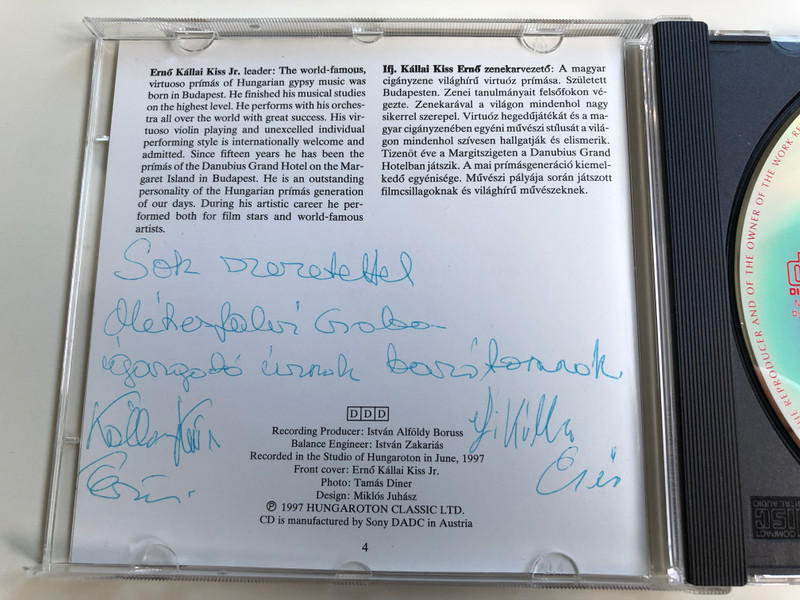 Ernő Kállai Kiss Jr. leader: The world-famous,
virtuoso prímás of Hungarian gypsy music was
born in Budapest. He finished his musical studies
on the highest level. He performs with his orches-
tra all over the world with great success. His vir-
tuoso violin playing and unexcelled individual
performing style is internationally welcome and
admitted. Since fifteen years he has been the
prímás of the Danubius Grand Hotel on the Mar-
garet Island in Budapest. He is an outstanding
personality of the Hungarian prímás generation
of our days. During his artistic career he per-
formed both for film stars and world-famous
artists.
Ifj. Kállai Kiss Ernő zenekarvezető: A magyar
cigányzene világhírű virtuóz prímása. Született
Budapesten. Zenei tanulmányait felsőfokon vé-
gezte. Zenekarával a világon mindenhol nagy
sikerrel szerepel. Virtuóz hegedűjátékát és a ma-
gyar cigányzenében egyéni művészi stílusát a vilá-
gon mindenhol szívesen hallgatják és elismerik.
Tizenöt éve a Margitszigeten a Danubius Grand
Hotelban játszik. A mai prímásgeneráció kiemel-
kedő egyénisége. Művészi pályája során játszott
filmcsillagoknak és világhírű művészeknek.
Sok szeretettel
Csaba
igazgató úrnak barátomnak
Kállai Kiss
Ernő
ifj Kállai
DDD
Recording Producer: István Alföldy Boruss
Balance Engineer: István Zakariás
Recorded in the Studio of Hungaroton in June, 1997
Front cover: Ernő Kállai Kiss Jr.
Photo: Tamás Diner
Design: Miklós Juhász
℗ 1997 HUNGAROTON CLASSIC LTD.
CD is manufactured by Sony DADC in Austria
4
THE REPRODUCER AND OF THE OWNER OF THE WORK RE
COMPACT
DISC
DIGITAL AUDIO